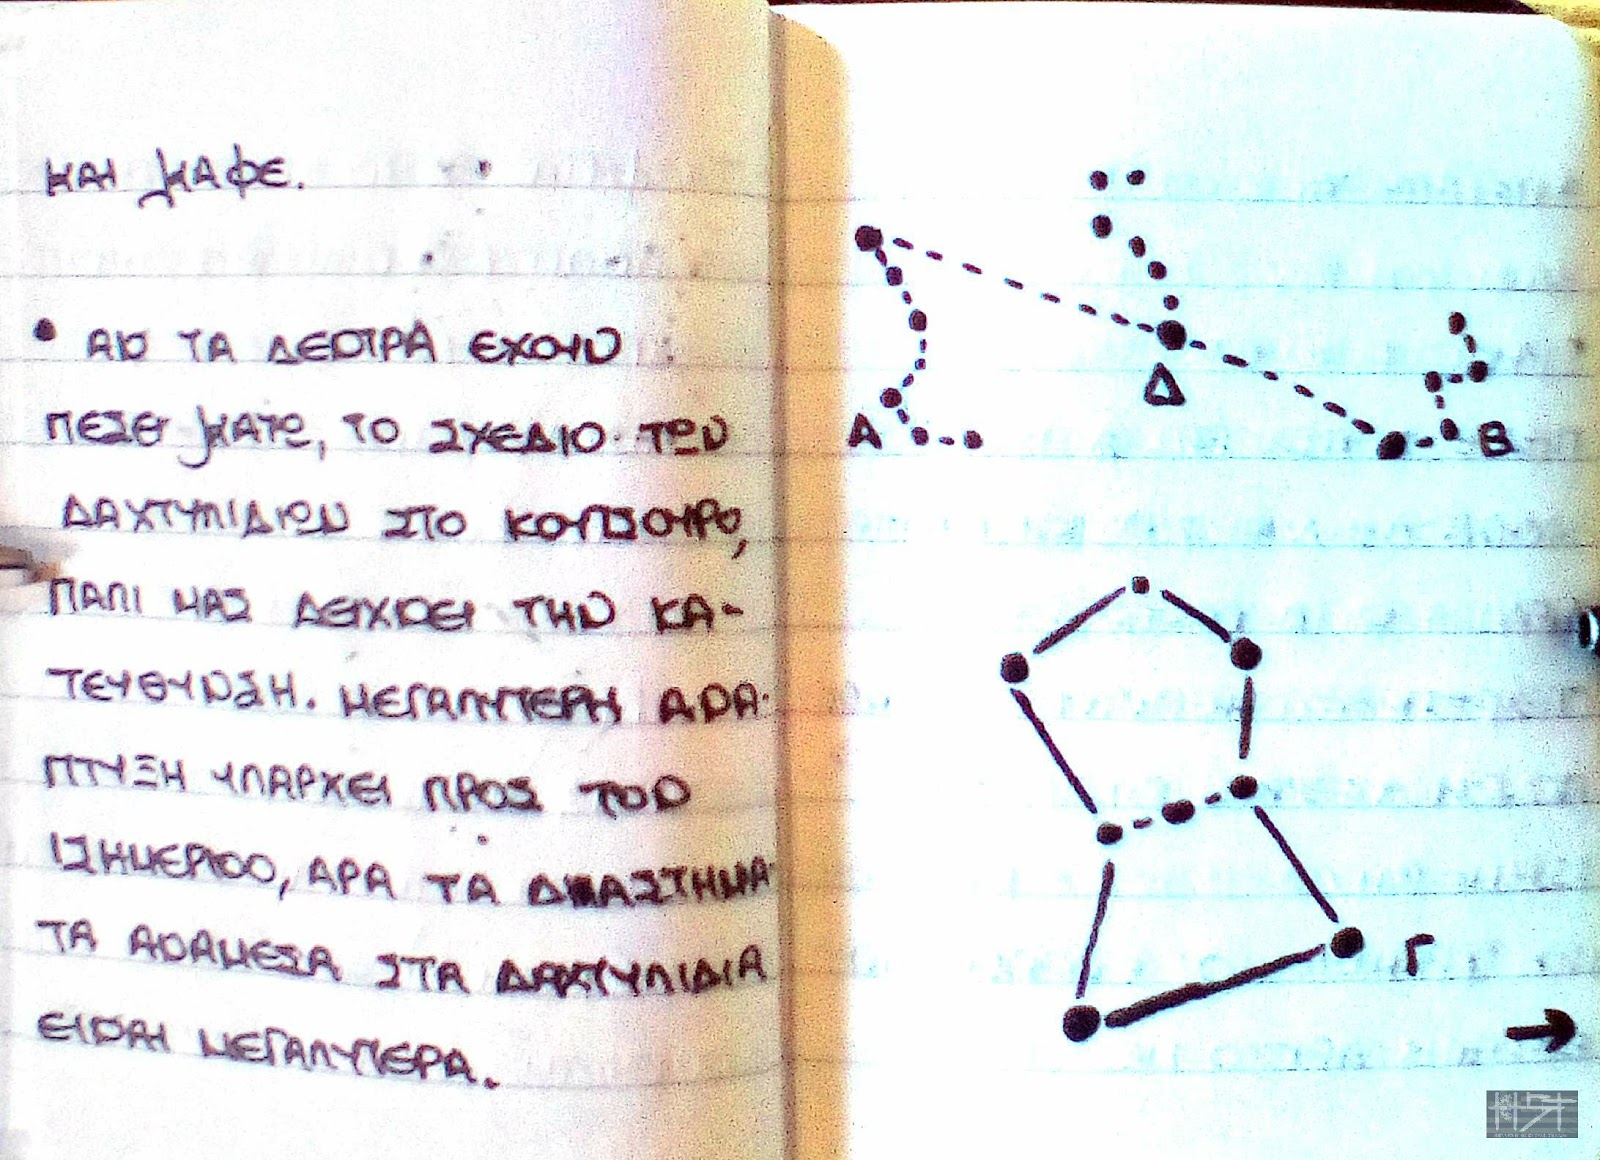 ΚΑΙ ΚΑΦΕ.
• ΑΝ ΤΑ ΔΕΝΤΡΑ ΕΧΟΥΝ
ΠΕΣΕΙ ΚΑΤΩ, ΤΟ ΣΧΕΔΙΟ ΤΩΝ
ΔΑΧΤΥΛΙΔΙΩΝ ΣΤΟ ΚΟΥΤΣΟΥΡΟ,
ΠΑΛΙ ΜΑΣ ΔΕΙΧΝΕΙ ΤΗΝ ΚΑ-
ΤΕΥΘΥΝΣΗ. ΜΕΓΑΛΥΤΕΡΗ ΑΝΑ-
ΠΤΥΞΗ ΥΠΑΡΧΕΙ ΠΡΟΣ ΤΟΝ
ΙΣΗΜΕΡΙΝΟ, ΑΡΑ ΤΑ ΔΙΑΣΤΗΜΑ-
ΤΑ ΑΝΑΜΕΣΑ ΣΤΑ ΔΑΧΤΥΛΙΔΙΑ
ΕΙΝΑΙ ΜΕΓΑΛΥΤΕΡΑ.
Δ
Α
Β
Γ
→